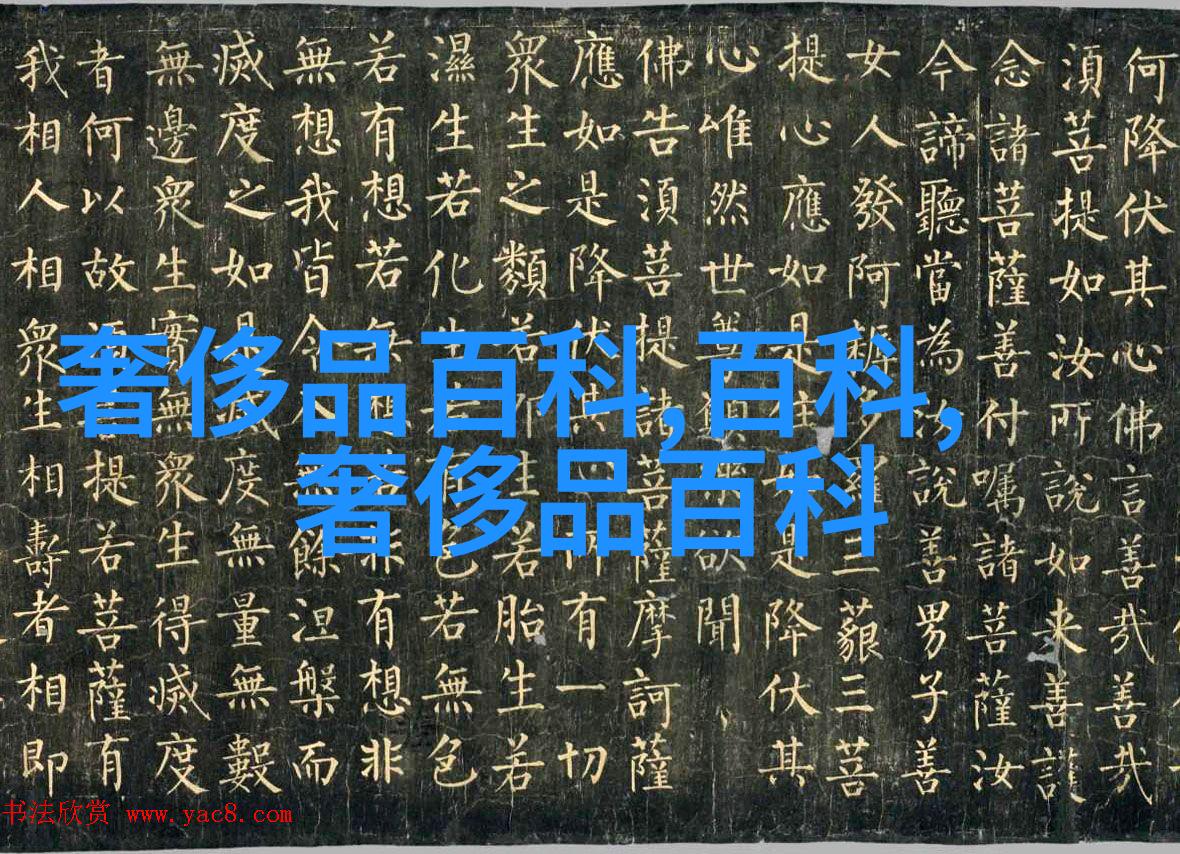 何降伏其心佛言善哉善哉
湏菩提如汝所說如来善護
念諸菩薩善付囑諸菩薩汝
今諦聽當為汝說善男子善
女人發阿耨多羅三藐三菩
提心應如是住如是降伏其
心唯然世尊願樂欲聞
佛告湏菩提諸菩薩摩訶薩
應如是降伏其心所有一切
眾生之類若卵生若胎生若
濕生若化生若有色若無色
若有想若無想若非有想非
無想我皆令入無餘涅槃而
滅度之如是滅度無量無數
無邊眾生實無眾生得滅度
者何以故湏菩提若菩薩有
我相人相眾生相壽者相即
奢侈品百科,百科,
奢侈品百科
书法欣赏 www.yac8.com